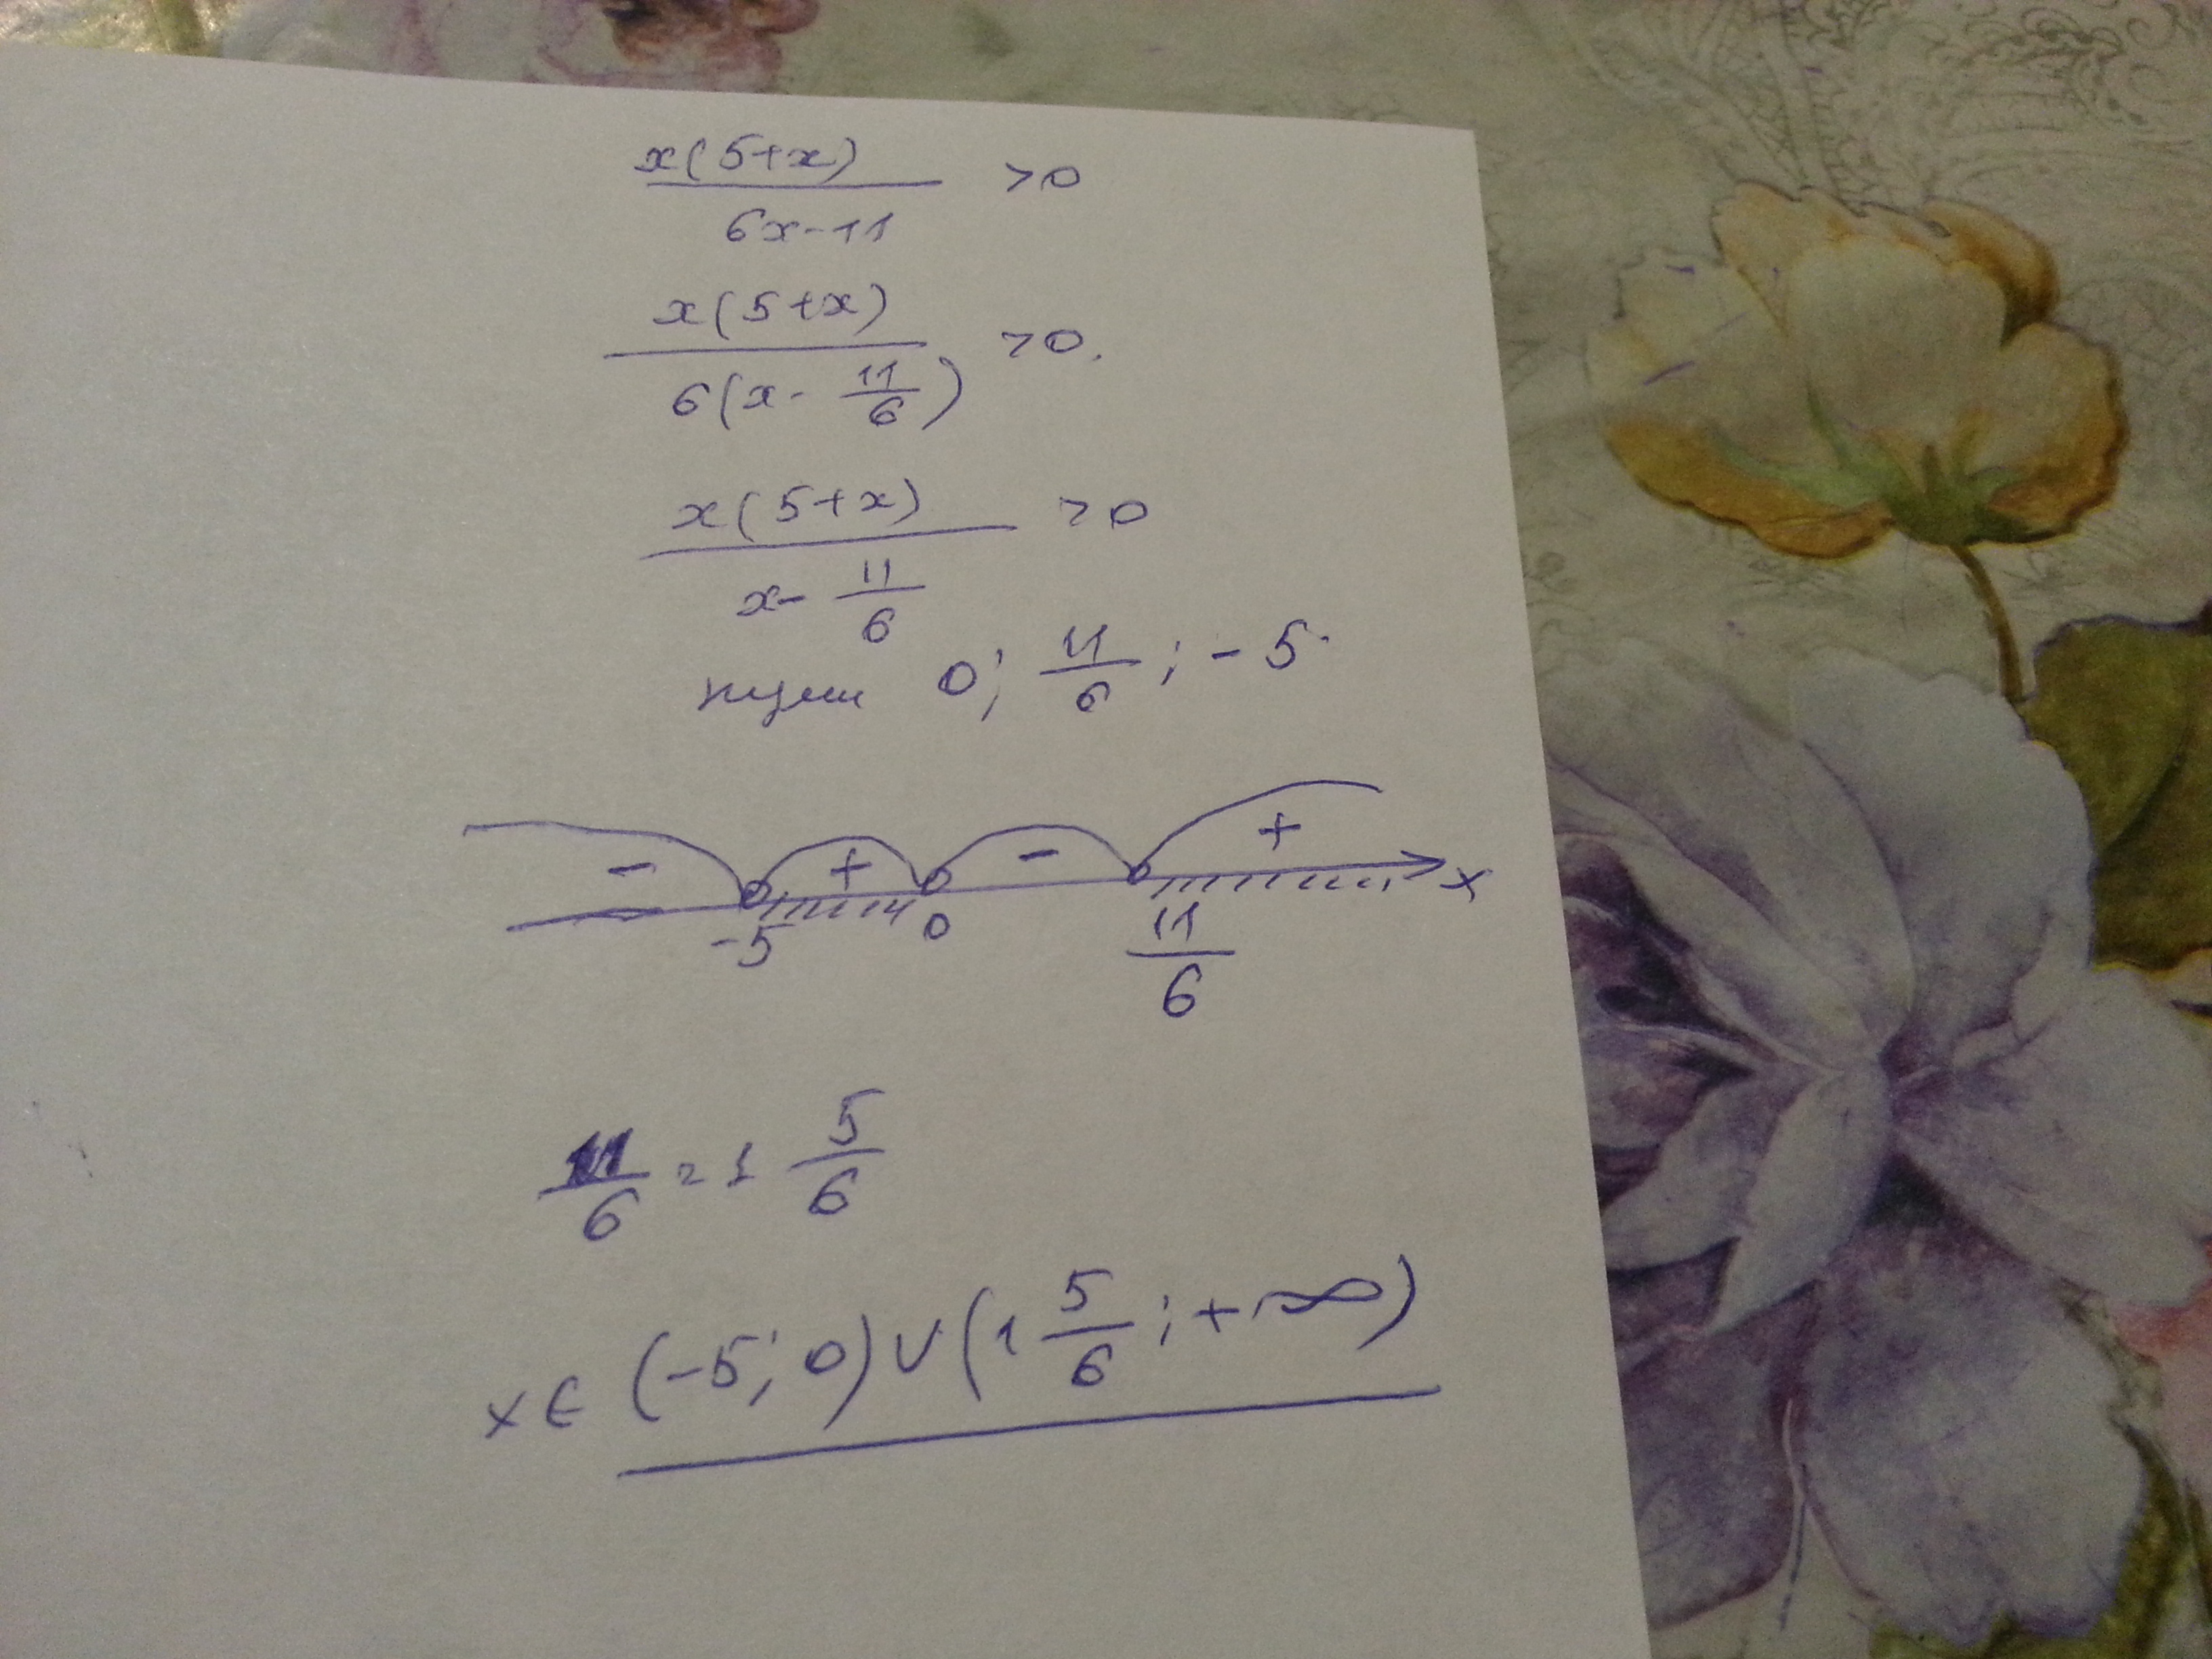 x(5+x)
/ 6x-11 >0
x(5+x)
/ 6(x- 11/6) >0.
x(5+x)
/ x- 11/6 >0
нули 0; 11/6; -5.
- + - +
-5 0 11/6 x
11/6 = 1 5/6
x ∈ (-5; 0) ∪ (1 5/6; +∞)